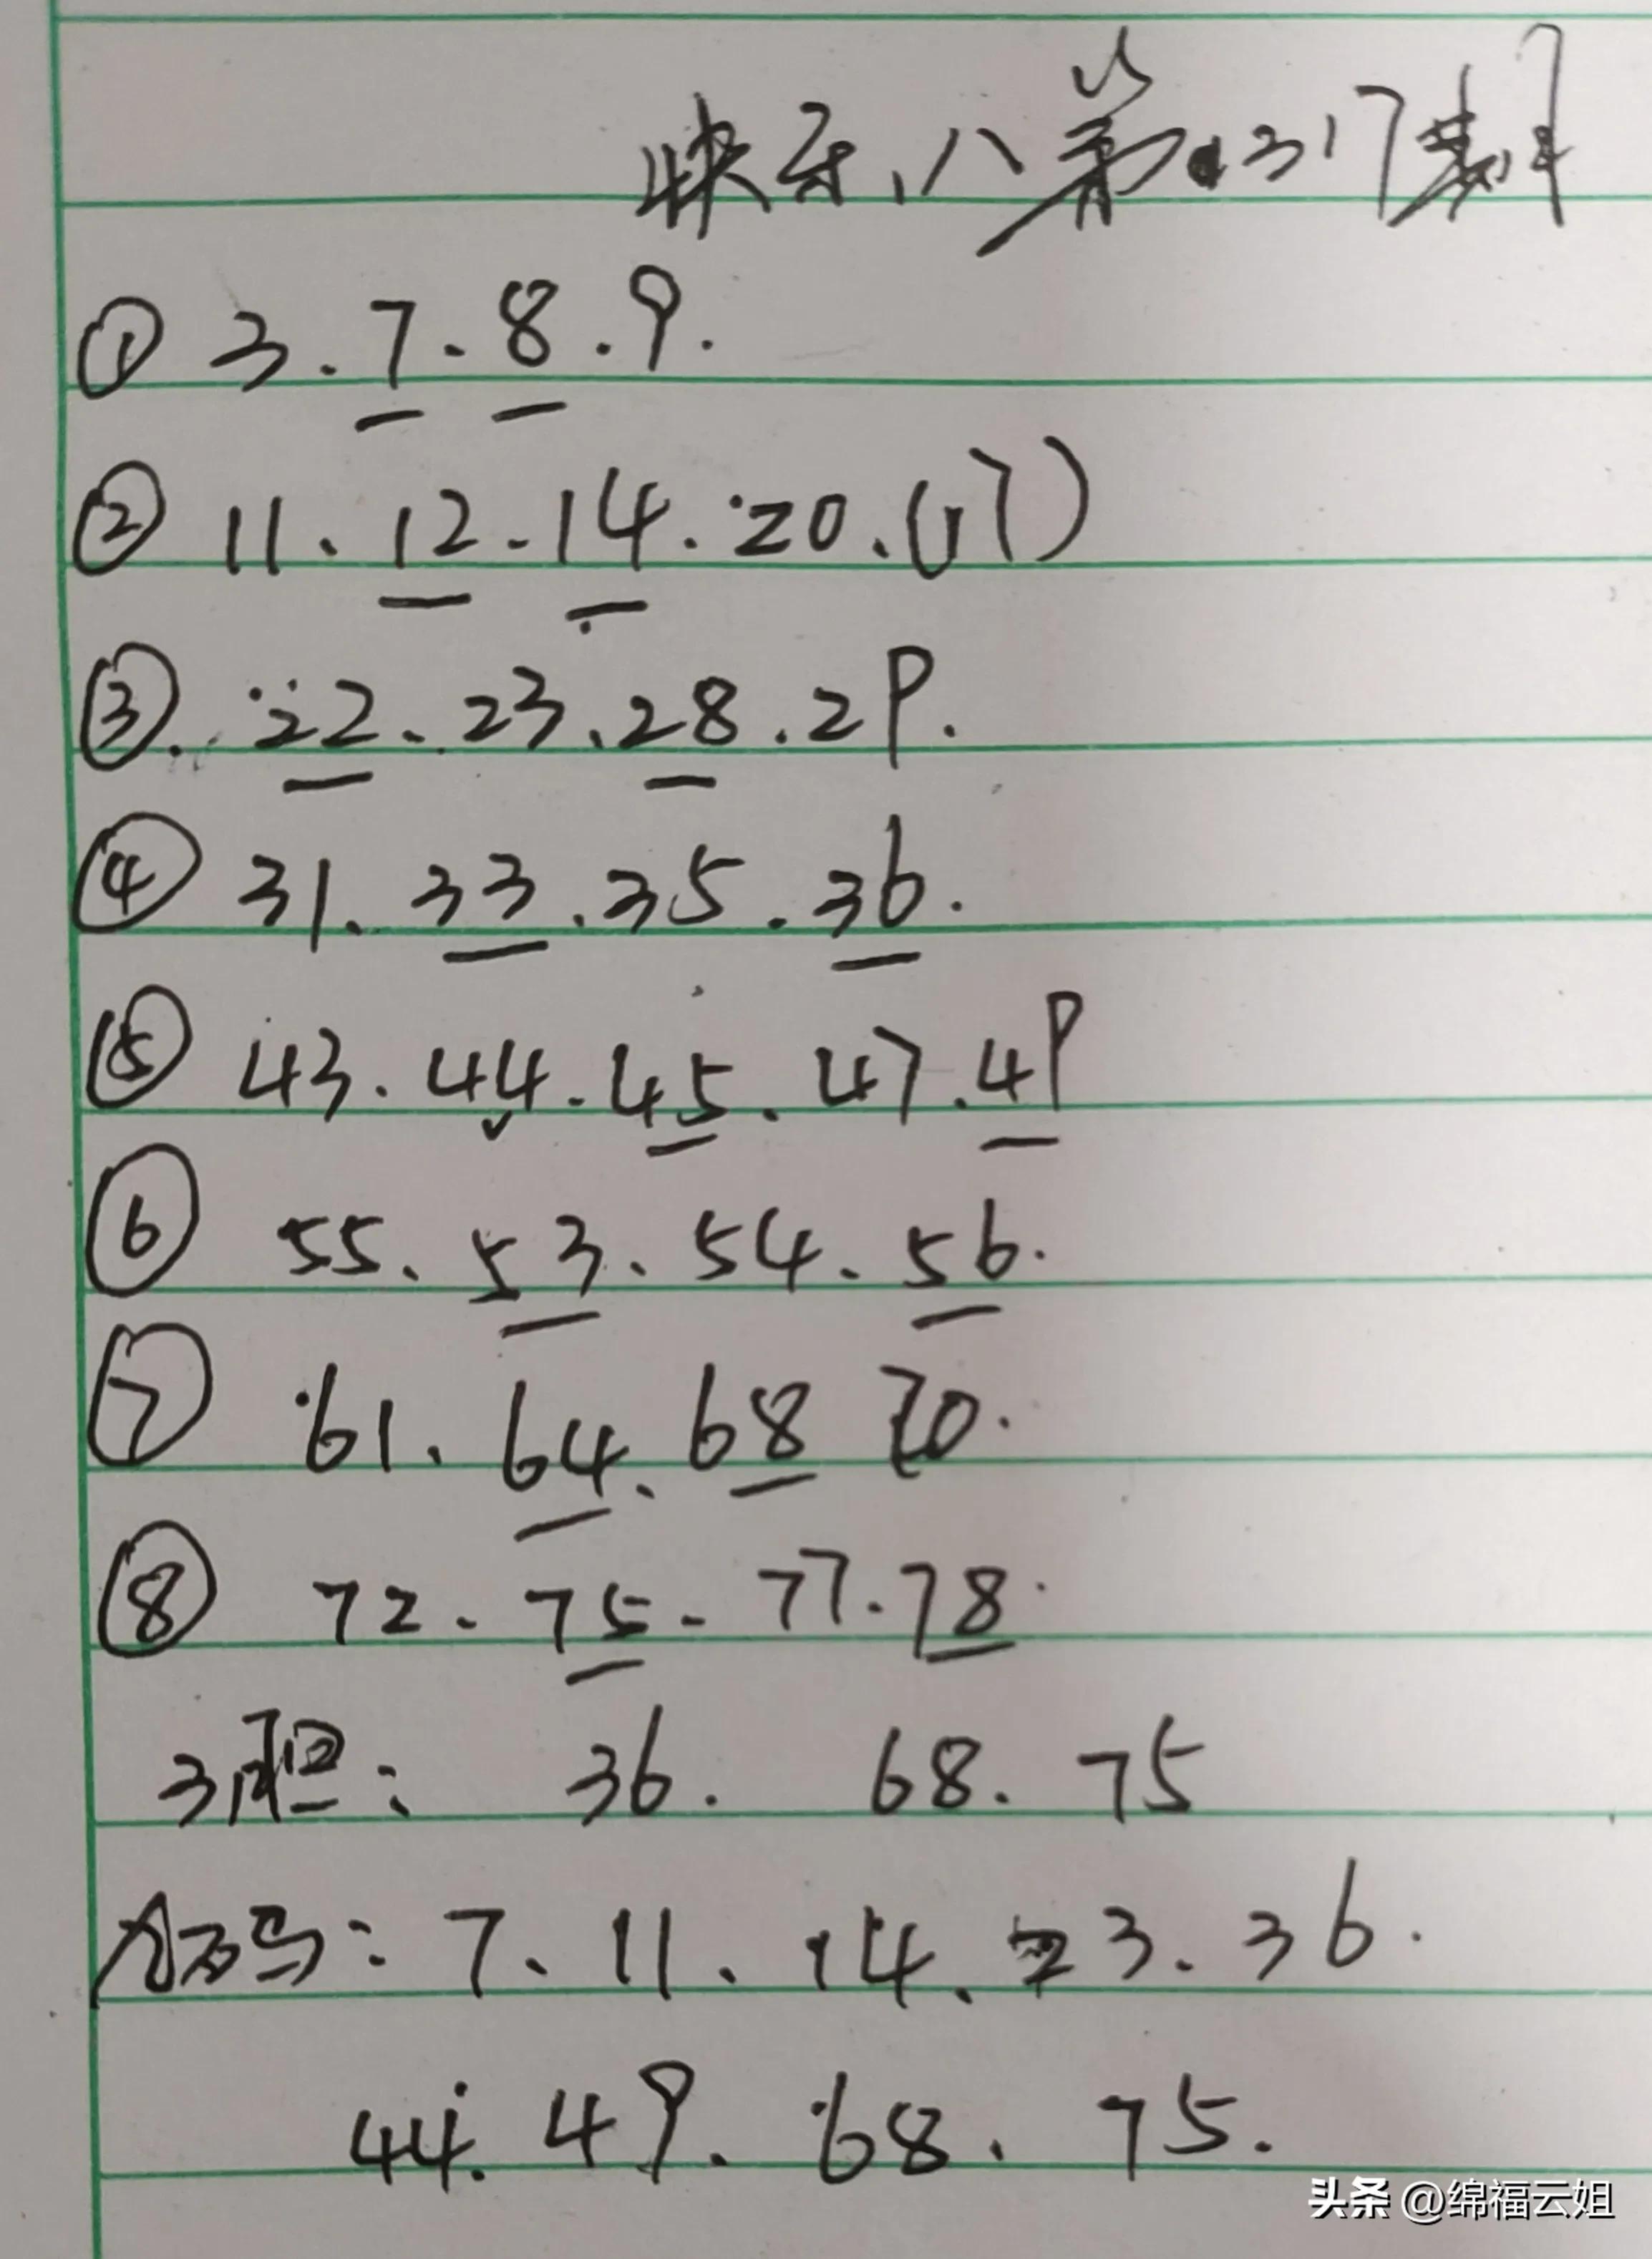 快乐八第317期
① 3.7.8.9.
② 11.12.14.20.(17)
③.22.23.28.29.
④ 31.33.35.36.
⑤ 43.44.45.47.49
⑥ 55.53.54.56.
⑦ 61.64.68 70.
⑧ 72.75.77.78.
3胆: 36. 68. 75
码: 7.11.14.23.36.
44.49.68.75.
头条 @绵福云姐